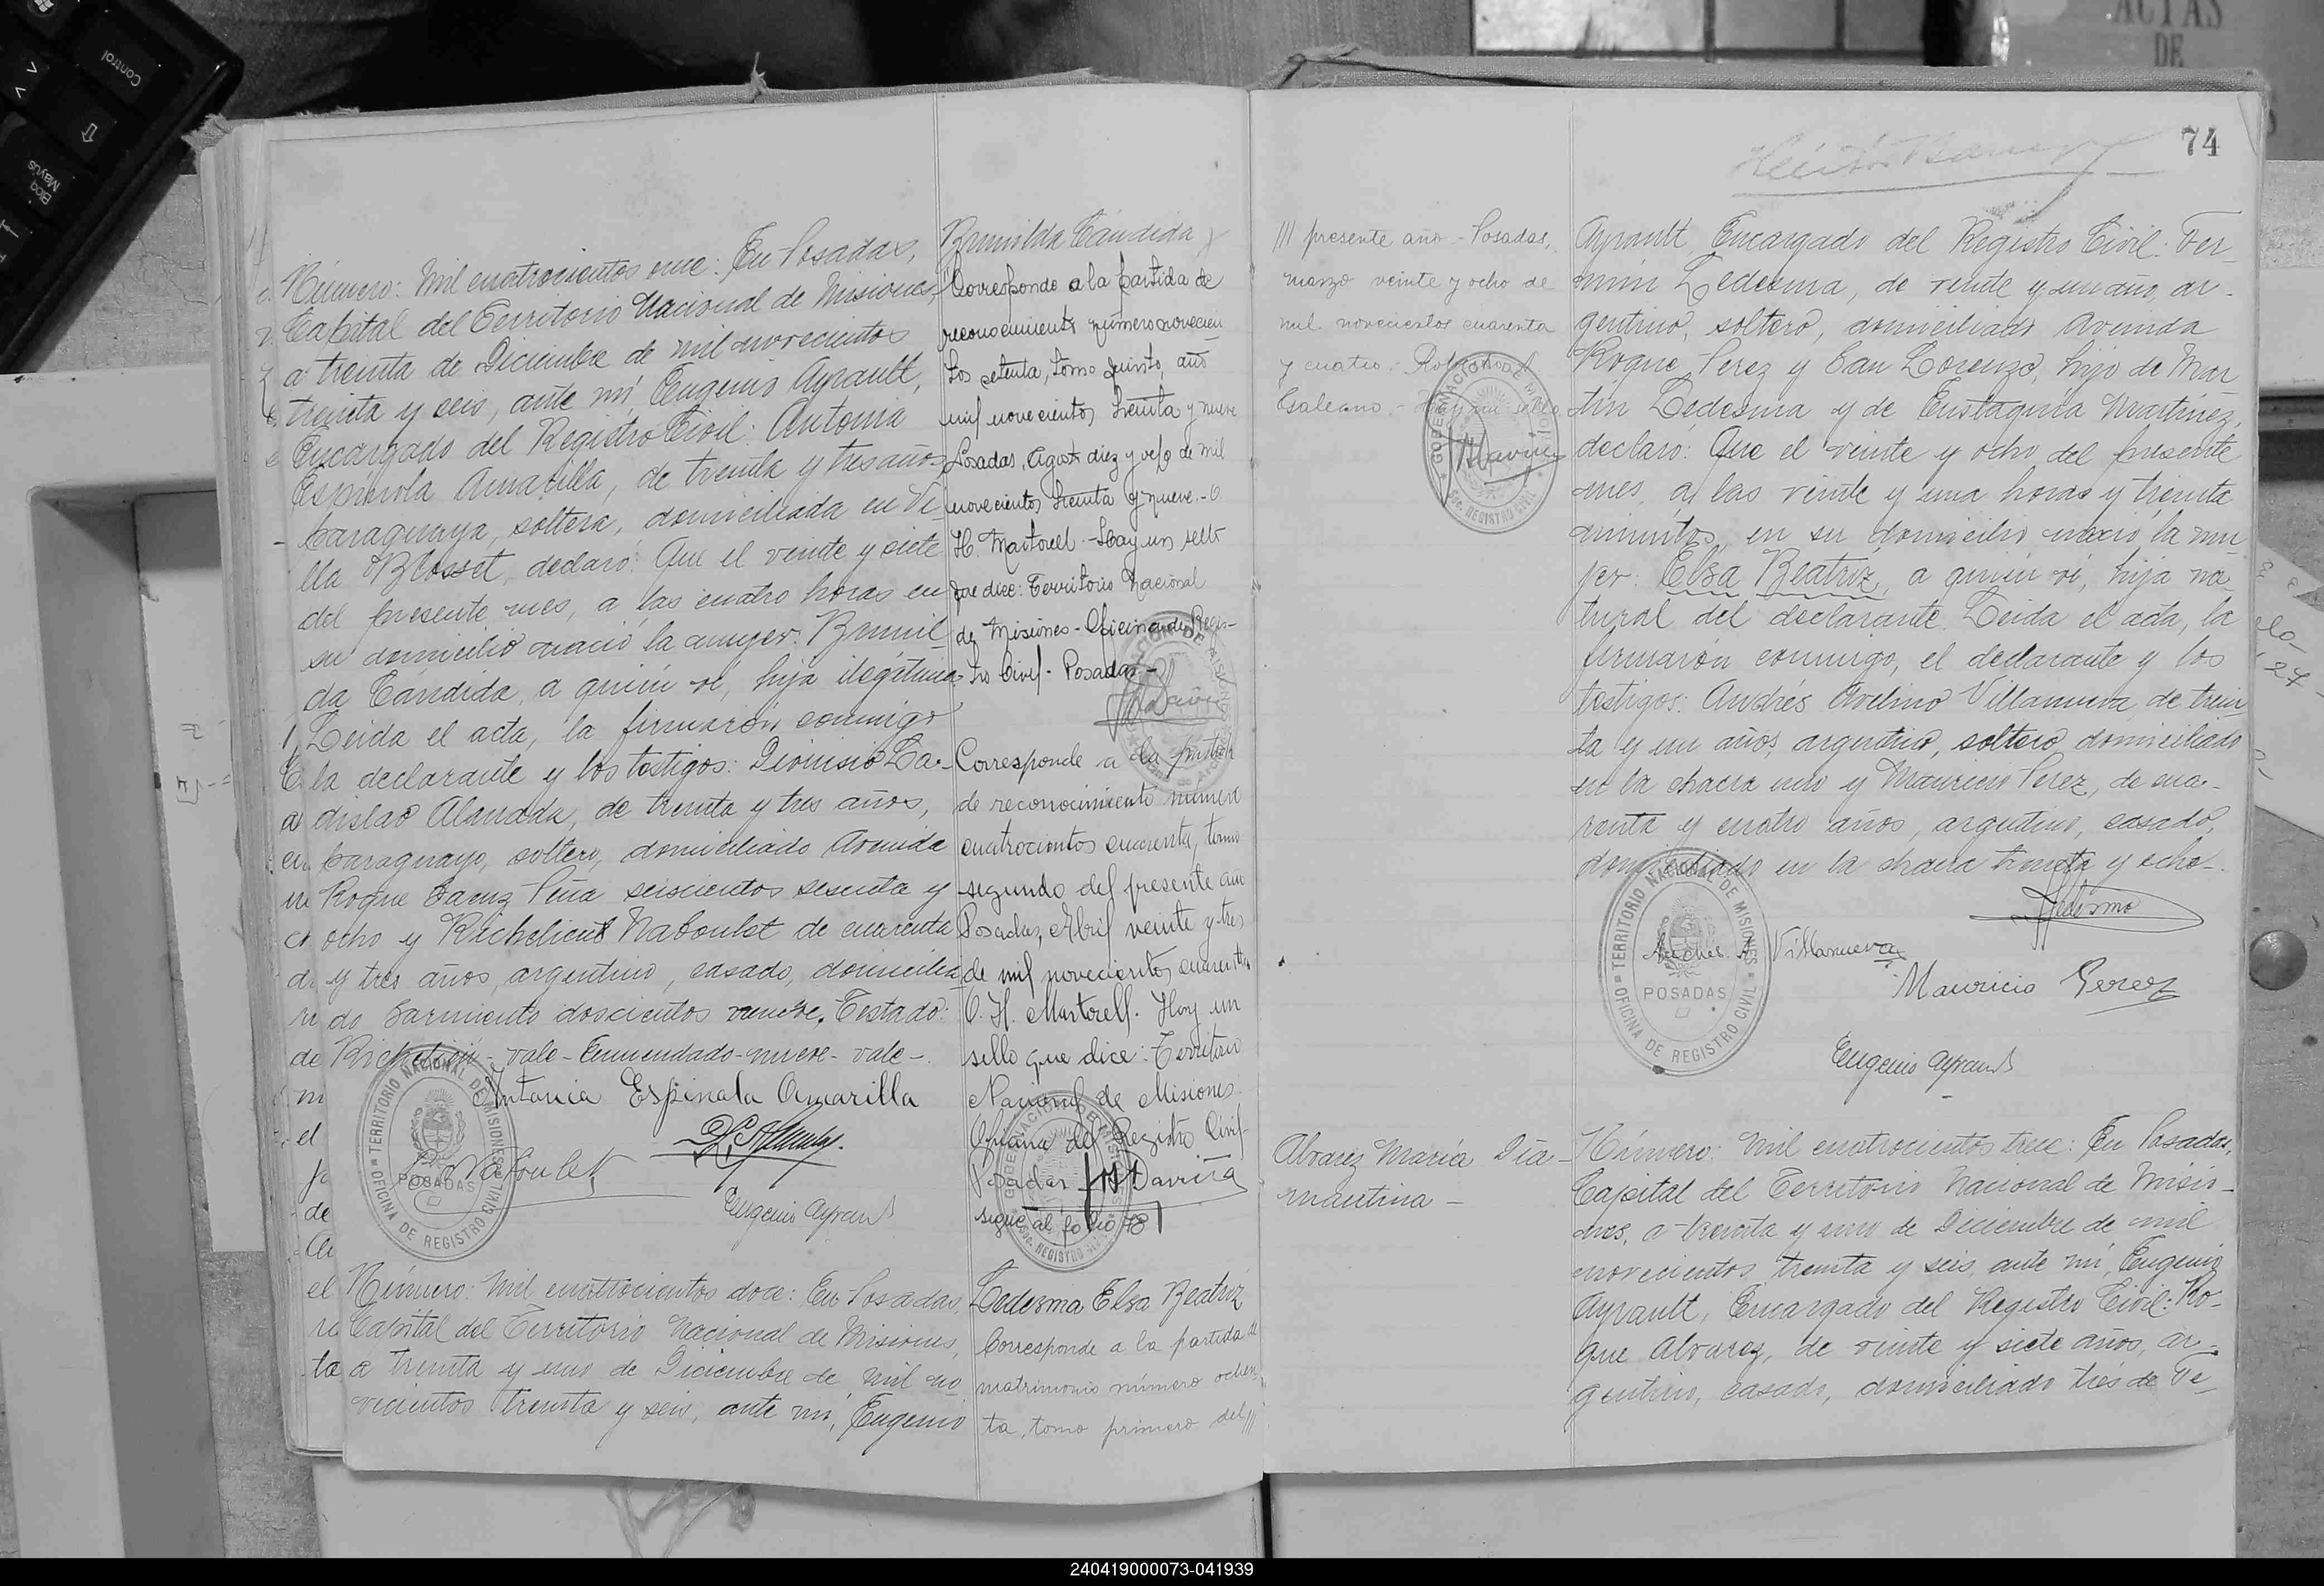 Número: Mil cuatrocientos once: En Posadas,
Capital del Territorio Nacional de Misiones,
a treinta de Diciembre de mil novecientos
treinta y seis, ante mí, Eugenio Ayrault,
Encargado del Registro Civil: Antonia
Espinola Amarilla, de treinta y tres años,
paraguaya, soltera, domiciliada en Vi-
lla Blosset, declaró: Que el veinte y siete
del presente mes, a las cuatro horas en
su domicilio nació la mujer: Brunil-
da Cándida, a quien ví, hija ilegítima.
Leída el acta, la firmaron conmigo
la declarante y los testigos: Dionisio La-
dislao Almada, de treinta y tres años,
paraguayo, soltero, domiciliado Avenida
Roque Saenz Peña seiscientos sesenta y
ocho y Richelieut Naboulet de cuarenta
y tres años, argentino, casado, domicilia-
do Sarmiento doscientos nueve. Testado:
Richelieu - vale - Enmendado - nueve - vale -.
Antonia Espinola Amarilla
Naboulet
Eugenio Ayrault
TERRITORIO NACIONAL DE MISIONES
POSADAS
OFICINA DE REGISTRO CIVIL
Brunilda Cándida
Corresponde a la partida de
reconocimiento número novecien-
tos setenta, tomo quinto, año
mil novecientos treinta y nueve
Posadas, Agosto diez y ocho de mil
novecientos treinta y nueve. - O.
H. Martorell - Hay un sello
que dice: Territorio Nacional
de Misiones - Oficina de Regis-
tro Civil - Posadas -
Corresponde a la partida
de reconocimiento número
cuatrocientos cuarenta, tomo
segundo del presente año
Posadas, Abril veinte y tres
de mil novecientos cuarenta
O. H. Martorell. Hay un
sello que dice: Territorio
Nacional de Misiones.
Oficina del Registro Civil
Posadas
sigue al folio 78
Número: Mil cuatrocientos doce: En Posadas,
Capital del Territorio Nacional de Misiones,
a treinta y uno de Diciembre de mil no-
vecientos treinta y seis, ante mí, Eugenio
Ledesma Elsa Beatriz
Corresponde a la partida de
matrimonio número ochen-
ta, tomo primero del ///
74
/// presente año - Posadas,
marzo veinte y ocho de
mil novecientos cuarenta
y cuatro.
Galeano. - Hay un sello
Ayrault, Encargado del Registro Civil: Fer-
mín Ledesma, de veinte y un años, ar-
gentino, soltero, domiciliado Avenida
Roque Perez y San Lorenzo, hijo de Mar-
tín Ledesma y de Eustaquia Martínez,
declaró: Que el veinte y ocho del presente
mes, a las veinte y una horas y treinta
minutos, en su domicilio nació la mu-
jer: Elsa Beatriz, a quien ví, hija na-
tural del declarante. Leída el acta, la
firmaron conmigo, el declarante y los
testigos: Andrés Avelino Villanueva, de trein-
ta y un años, argentino, soltero, domiciliado
en la chacra uno y Mauricio Perez, de cua-
renta y cuatro años, argentino, casado,
domiciliado en la chacra treinta y ocho -.
Ledesma
Andres A Villanueva
Mauricio Perez
Eugenio Ayrault
TERRITORIO NACIONAL DE MISIONES
POSADAS
OFICINA DE REGISTRO CIVIL
Alvarez María Dia-
mantina -
Número: Mil cuatrocientos trece: En Posadas,
Capital del Territorio Nacional de Misio-
nes, a treinta y uno de Diciembre de mil
novecientos treinta y seis, ante mí, Eugenio
Ayrault, Encargado del Registro Civil: Ro-
que Alvarez, de veinte y siete años, ar-
gentino, casado, domiciliado tres de Fe-
ACTAS
DE
Control
Bloq
Mayús
240419000073-041939